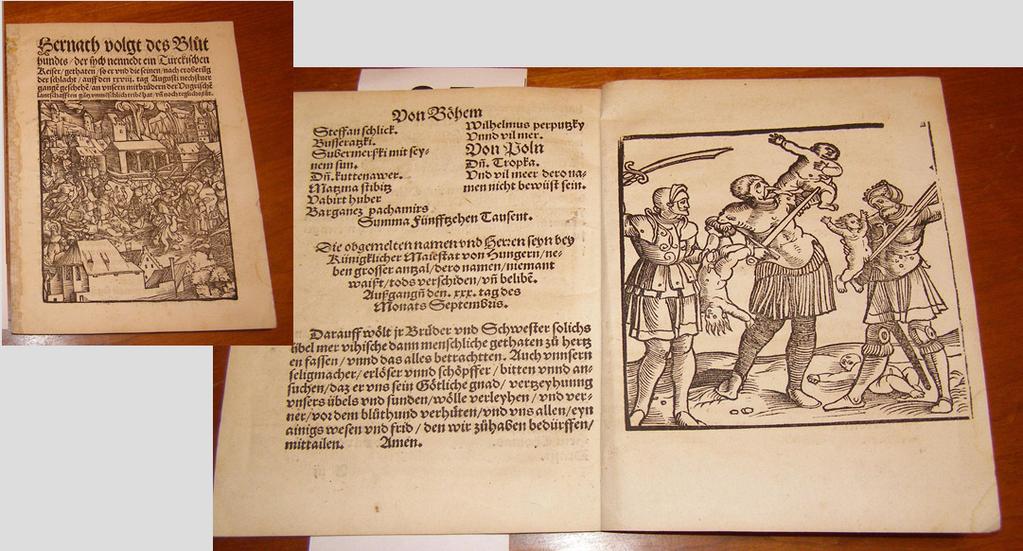 Hernach volgt des Blůt
hundts / der sych nennedt ein Türckischen
Keiser / gethaten / so er vnd die seinen / nach eroberũg
der schlacht / auff den xxviii. tag Augusti nechstuer
gangẽ geschehẽ / an vnsern mitbrüdern der Vngrischẽ
lantschafften gãtz vnmẽschlich tribẽ hat / vñ noch teglichs tůt.
Von Böhem
Steffan schlick.
Busseratzki.
Gußermerski mit sey-
nem sun.
Dñ. kuttenawer.
Matzma stibitz
Vabirt huber
Barganez pachamirs
Wilhelmus perputzky
Vnnd vil mer.
Von Poln
Dñ. Tropka.
Vnd vil meer dero na-
men nicht bewüst sein.
Summa Fünffzehen Tausent.
Die obgemelten namen vnd Herren seyn bey
Künigklicher Maiestat von Hungern / ne-
ben grosser antzal / dero namen / niemant
waist / tods verschiden / vñ belibẽ.
Außgangñ den. xxx. tag des
Monats Septembris.
Darauff wölt jr Brüder vnd Schwester solichs
übel mer vihische dann menschliche gethaten zů hertz
en fassen / vnnd das alles betrachtten. Auch vnnsern
seligmacher / erlöser vnnd schöpffer / bitten vnnd an-
sůchen / daz er vns sein Götliche gnad / verzeyhunng
vnsers übels vnd sunden / wölle verleyhen / vnd ver-
ner / vor dem blůthund verhůten / vnd vns allen / eyn
ainigs wesen vnd frid / den wir zůhaben bedürffen /
mittailen. Amen.